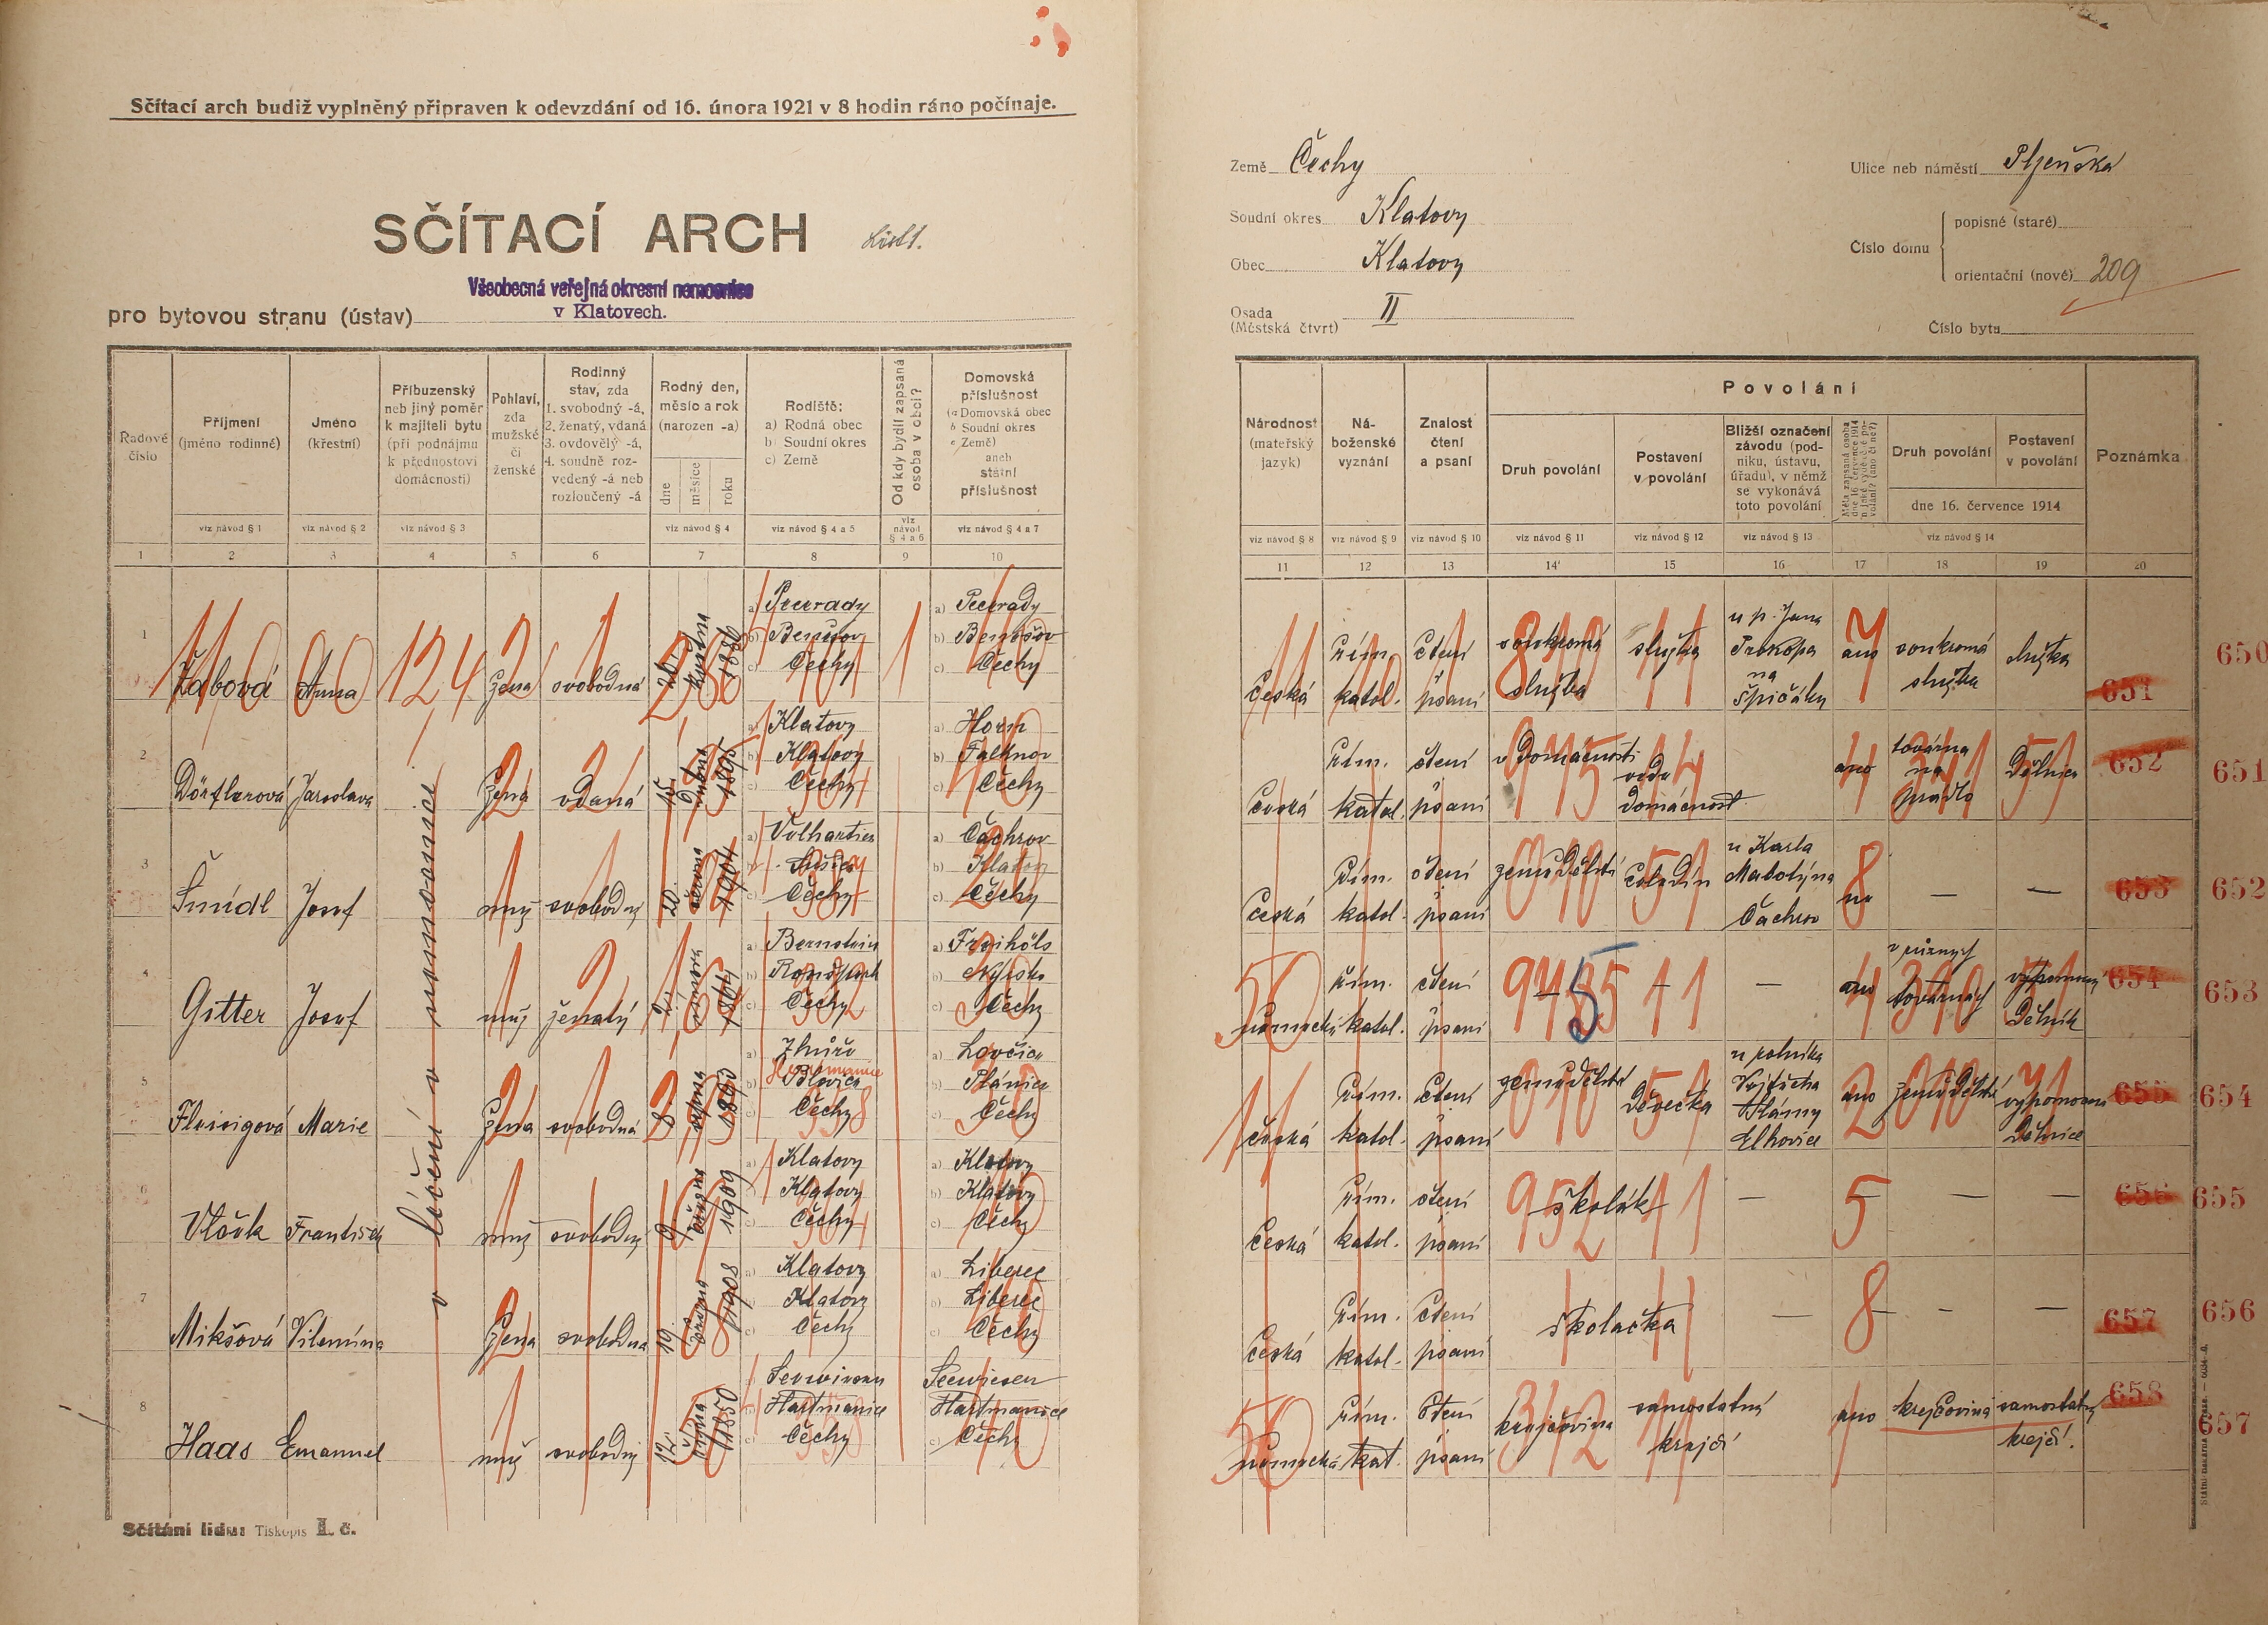 Sčítací arch budiž vyplněný připraven k odevzdání od 16. února 1921 v 8 hodin ráno počínaje.
SČÍTACÍ ARCH
Všeobecná veřejná okresní nemocnice
v Klatovech.
pro bytovou stranu (ústav)
Země Čechy
Soudní okres Klatovy
Obec Klatovy
Osada
(Městská čtvrt) II
Ulice neb náměstí Plzeňská
Číslo domu
popisné (staré)
orientační (nové) 209
Číslo bytu
Řadové číslo
Příjmení (jméno rodinné)
Jméno (křestní)
Příbuzenský neb jiný poměr k majiteli bytu (při podnájmu k přednostovi domácnosti)
Pohlaví, zda mužské či ženské
Rodinný stav, zda 1. svobodný -á, 2. ženatý, vdaná 3. ovdovělý -á, 4. soudně rozvedený -á neb rozloučený -á
Rodný den, měsíc a rok (narozen -a)
dne měsíce roku
Rodiště: a) Rodná obec b) Soudní okres c) Země
Od kdy bydlí zapsaná osoba v obci?
Domovská příslušnost (a Domovská obec b Soudní okres c Země) aneb státní příslušnost
viz návod § 1
viz návod § 2
viz návod § 3
viz návod § 4
viz návod § 4 a 5
viz návod § 4 a 6
viz návod § 4 a 7
1 2 3 4 5 6 7 8 9 10
Národnost (mateřský jazyk)
Náboženské vyznání
Znalost čtení a psaní
Povolání
Druh povolání
Postavení v povolání
Bližší označení závodu (podniku, ústavu, úřadu), v němž se vykonává toto povolání
Druh povolání
Postavení v povolání
dne 16. července 1914
Poznámka
viz návod § 8
viz návod § 9
viz návod § 10
viz návod § 11
viz návod § 12
viz návod § 13
viz návod § 14
11 12 13 14 15 16 17 18 19 20
v léčení v nemocnici
1 Žabová Anna žena svobodná 1886
a) Pecerady b) Benešov c) Čechy
a) Pecerady b) Benešov c) Čechy
česká řím. katol. čtení psaní soukromá služba služka u p. Jana Prokopa na Špičáku ano soukromá služba služka
651 650
2 Dörflerová Jaroslava žena vdaná 15. 1895
a) Klatovy b) Klatovy c) Čechy
a) Horn b) Falknov c) Čechy
česká řím. katol. čtení psaní v domácnosti vede domácnost ano továrna na prádlo dělnice
652 651
3 Šmídl Josef muž svobodný 20. června 1904
a) Volhartice b) Sušice c) Čechy
a) Čachrov b) Klatovy c) Čechy
česká řím. katol. čtení psaní zemědělství čeledín u Karla Čachrov ne — —
653 652
4 Gitter Josef muž ženatý 2. února 1864
a) Bernstein b) Ronsperk c) Čechy
a) Freihöls b) Nýrsko c) Čechy
německá řím. katol. čtení psaní — — — ano v různých továrnách výpomocný dělník
654 653
5 Fleisigová Marie žena svobodná 8. srpna 1893
a) Zhůří b) Hartmanice c) Čechy
a) Lovčice b) Plánice c) Čechy
česká řím. katol. čtení psaní zemědělství děvečka u rolníka Vojtěcha Slámy Elhovice ano zemědělství výpomocná dělnice
655 654
6 Vlček František muž svobodný 9. 1909
a) Klatovy b) Klatovy c) Čechy
a) Klatovy b) Klatovy c) Čechy
česká řím. katol. čtení psaní školák — — —
656 655
7 Mikšová Vilemína žena svobodna 19. 1908
a) Klatovy b) Klatovy c) Čechy
a) Liberec b) Liberec c) Čechy
česká řím. katol. čtení psaní školačka — — — —
657 656
8 Haas Emanuel muž svobodný 12. 1850
Seewiesen b) Hartmanice c) Čechy
Seewiesen Hartmanice c) Čechy
německá řím. kat. čtení psaní krejčovina samostatný krejčí ano krejčovina samostatný krejčí.
658 657
Sčítání lidu: Tiskopis I. č.